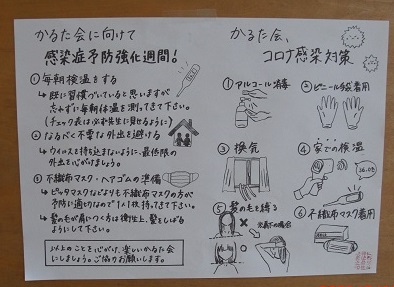 かるた会に向けて
感染症予防強化週間!
①毎朝検温をする
→既に習慣がついていると思いますが
忘れずに毎朝体温を測ってきて下さい。
(チェック表は必ず先生に見せるように)
②なるべく不要な外出を避ける
→ウイルスを持ち込まないように、最低限の
外出を心がけましょう。
③不織布マスク・ヘアゴムの準備
→ピッタマスクなどよりも不織布マスクの方が
予防に適切なので1人1枚持ってきて下さい。
→髪の毛が肩につく方は衛生上、髪をしばる
ようにして下さい。
以上のことを心がけ、楽しいかるた会
にしましょう。ご協力お願いします。
かるた会、
コロナ感染対策
①アルコール消毒
②ビニール手袋着用
③換気
④家での検温
36.0℃
⑤髪の毛を縛る
⑥不織布マスク着用